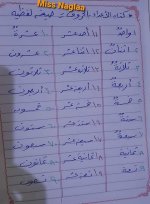 Miss Naglaa
١ واحد ١١ أحد عشر ١٠ عشرة
٢ اثنان ١٢ اثنا عشر ٢٠ عشرون
٣ ثلاثة ١٣ ثلاثة عشر ٣٠ ثلاثون
٤ أربعة ١٤ أربعة عشر ٤٠ أربعون
٥ خمسة ١٥ خمسة عشر ٥٠ خمسون
٦ ستة ١٦ ستة عشر ٦٠ ستون
٧ سبعة ١٧ سبعة عشر ٧٠ سبعون
٨ ثمانية ١٨ ثمانية عشر ٨٠ ثمانون
٩ تسعة ١٩ تسعة عشر ٩٠ تسعون